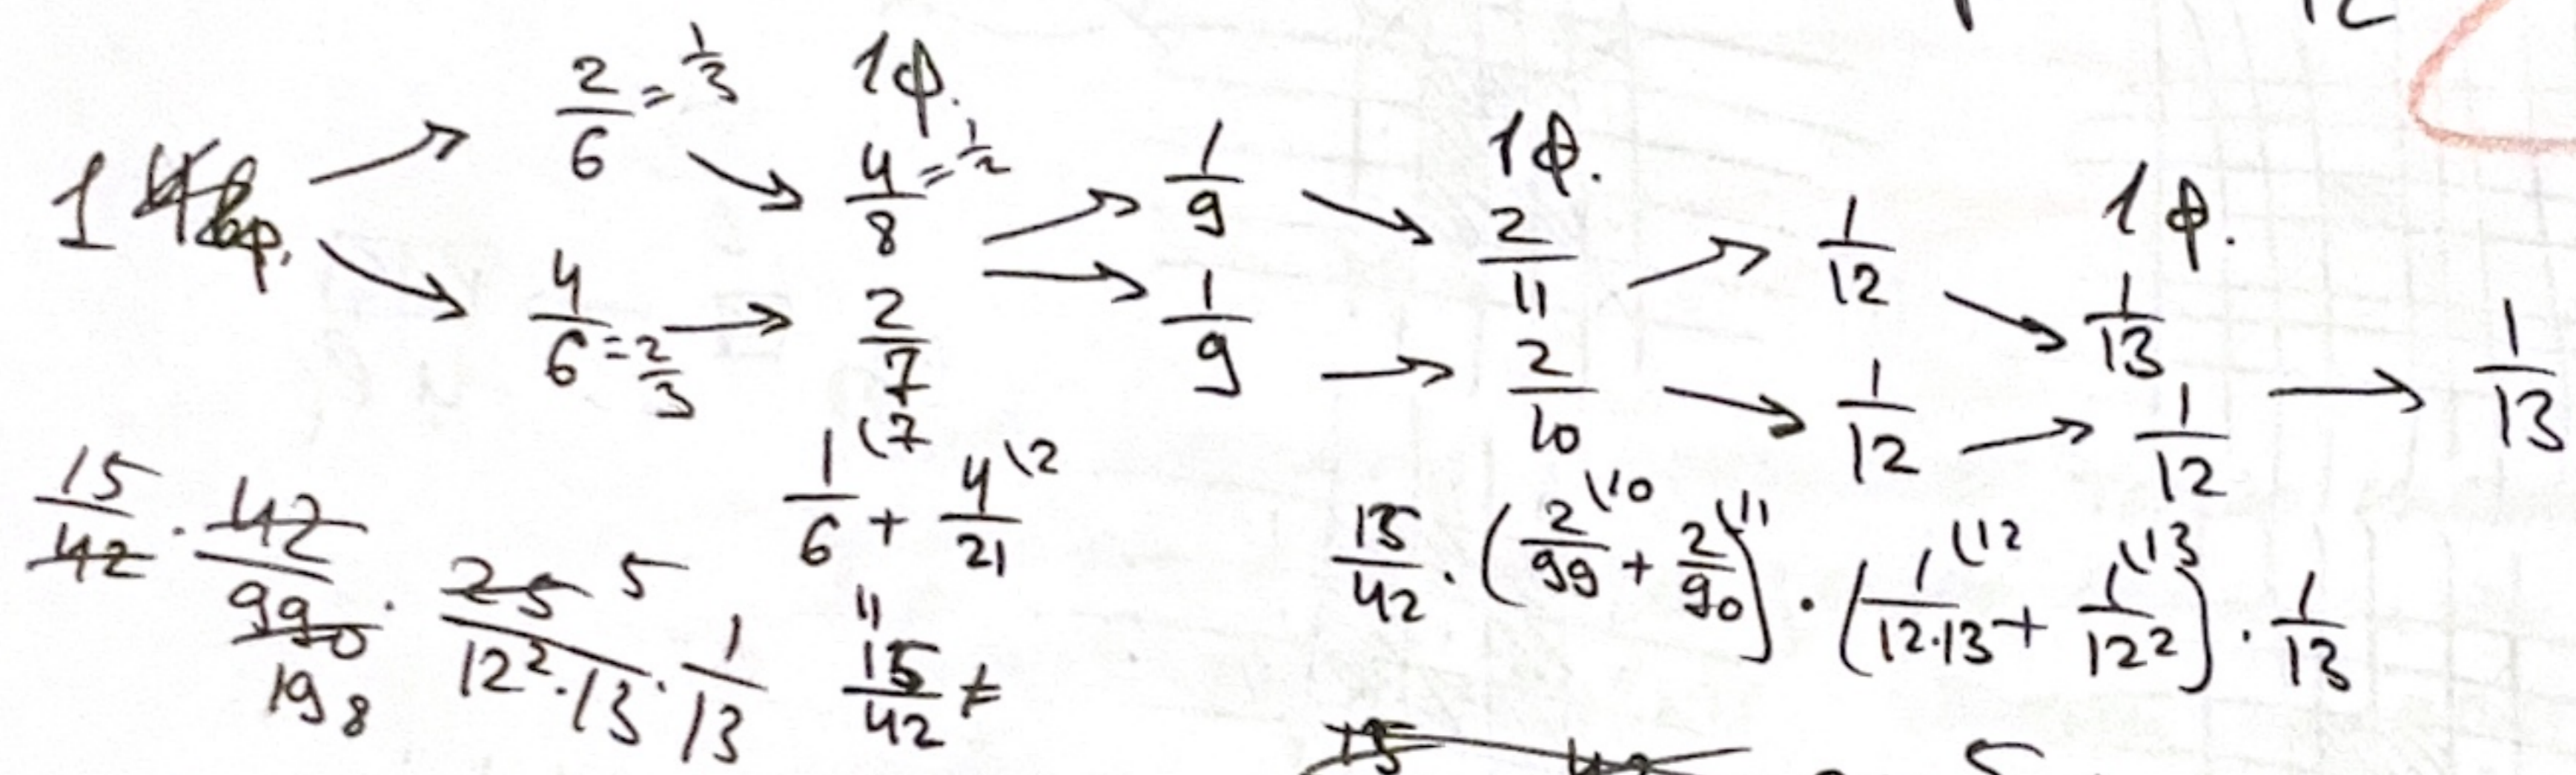 1 вр. → 2/6 = 1/3 → 1ф. 4/8 = 1/2 → 1/9 → 1ф. 2/11 → 1/12 → 1ф. 1/13
→ 4/6 = 2/3 → 2/7 → 1/9 → 2/10 → 1/12 → 1/12 → 1/13
1/6 \7 + 4/21 \2
15/42 · 42/990 198 · 25 5/12² · 13 · 1/13
" 15/42 ≠
15/42 · (2/99 \10 + 2/90 \11) · (1/12·13 \12 + 1/12² \13) · 1/13